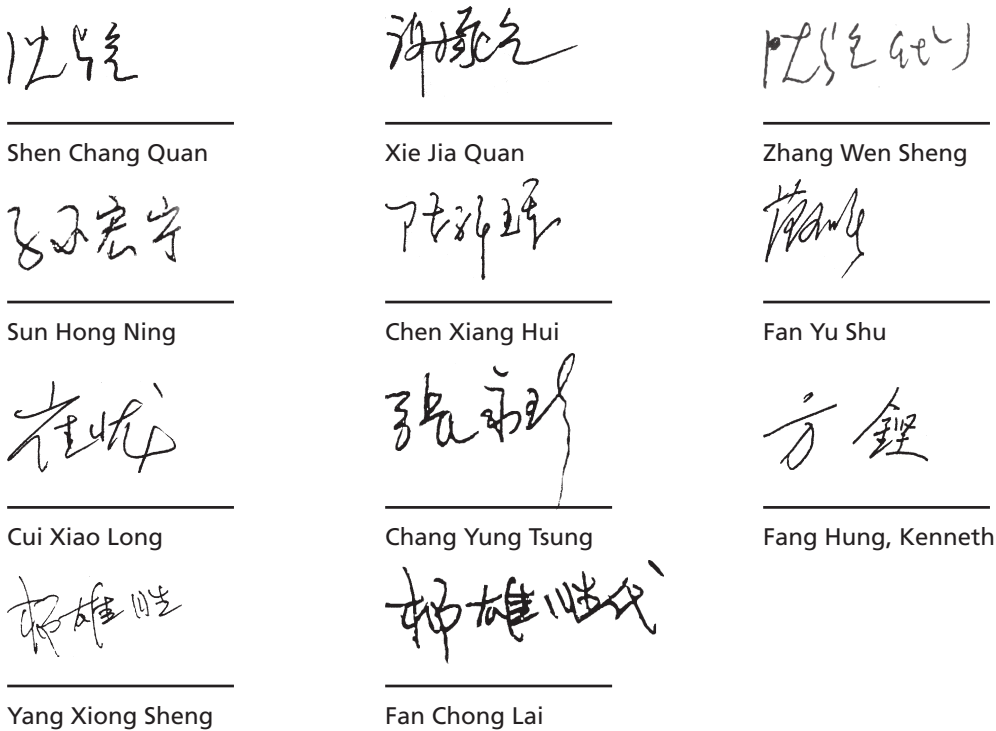 Shen Chang Quan
Xie Jia Quan
Zhang Wen Sheng
孙宏宁
Sun Hong Ning
Chen Xiang Hui
Fan Yu Shu
崔小龙
張永珍
方鏗
Cui Xiao Long
Chang Yung Tsung
Fang Hung, Kenneth
杨雄胜
杨雄胜代
Yang Xiong Sheng
Fan Chong Lai